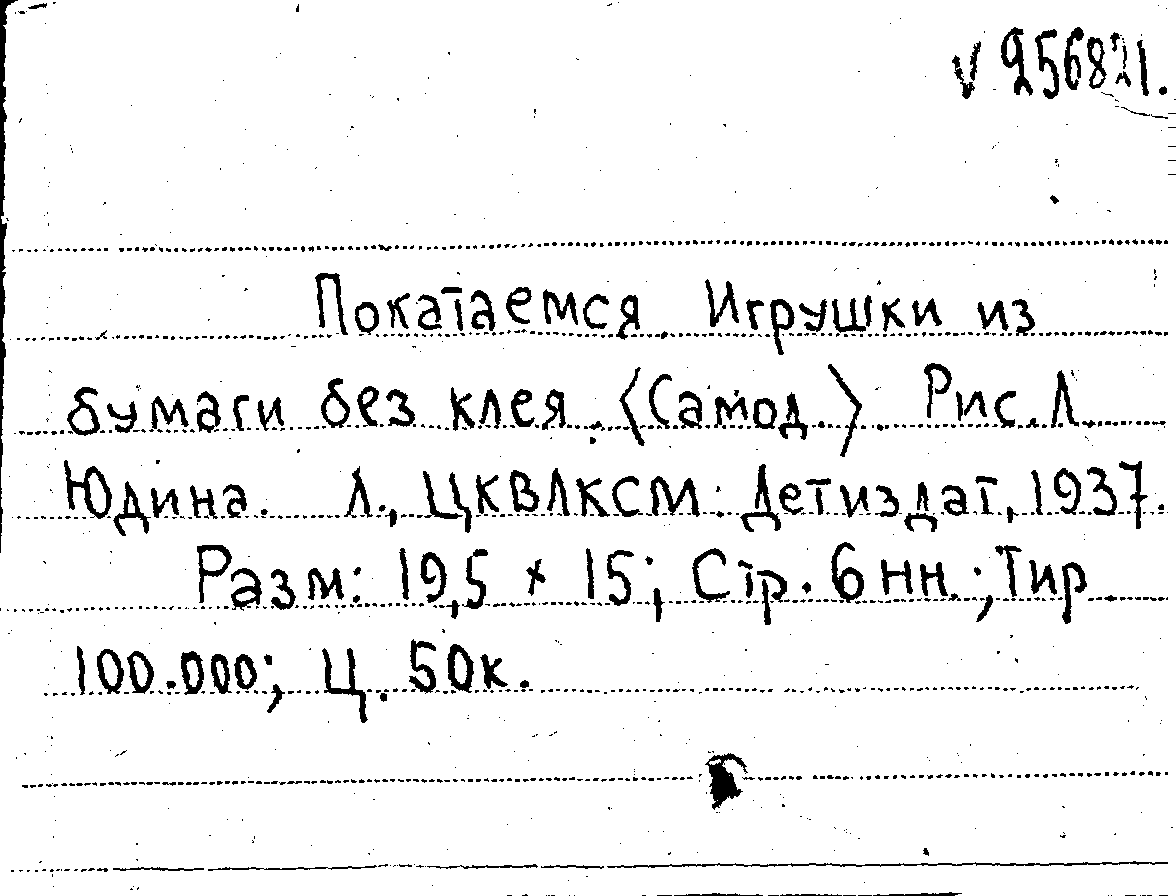 V 256821.
Покатаемся. Игрушки из
бумаги без клея. 〈Самод.〉 Рис. Л.
Юдина. Л., ЦКВЛКСМ: Детиздат, 1937.
Разм: 19,5 × 15; Стр. 6 нн.; Тир.
100.000; Ц. 50к.